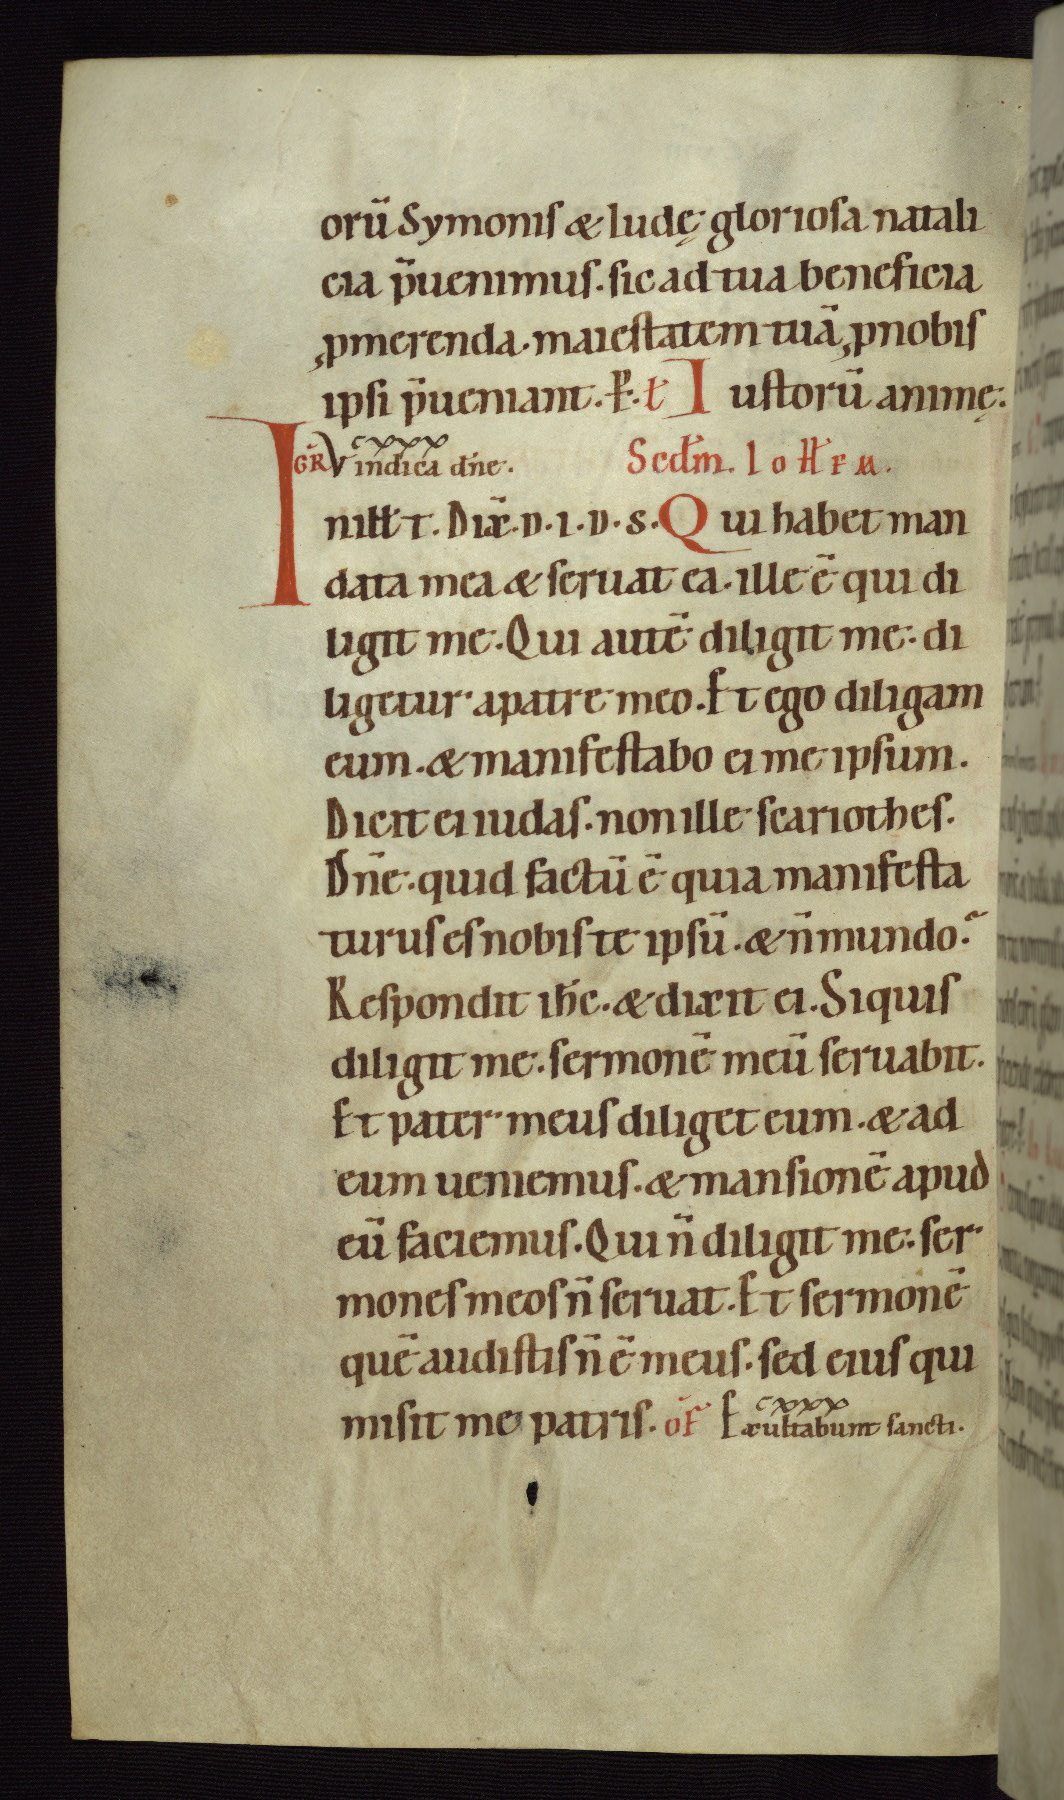 orū Symonis & Iudę gloriosa natali
cia p̄uenimus. sic ad tua beneficia
ꝓmerenda. maiestatem tuā ꝓ nobis
ipsi p̄ueniant. P̄. ł Iustorū animę.
GR̄ Vindica dn̄e. cxxx Scd̄m. Ioħem.
In illł t. Dix̄. d. i. d. s. Qui habet man
data mea & seruat ea. ille ē qui di
ligit me. Qui autē diligit me. di
ligetur a patre meo. Et ego diligam
eum. & manifestabo ei me ipsum.
Dicit ei iudas. non ille scariothes.
Dn̄e. quid factū ē quia manifesta
turus es nobis te ipsū. & n̄ mundo?
Respondit ih̄c. & dixit ei. Siquis
diligit me. sermonē meū seruabit.
Et pater meus diliget eum. & ad
eum ueniemus. & mansionē apud
eū faciemus. Qui n̄ diligit me. ser
mones meos n̄ seruat. Et sermonē
quē audistis n̄ ē meus. sed eius qui
misit me patris. oF̄ Exultabunt sancti. cxxx